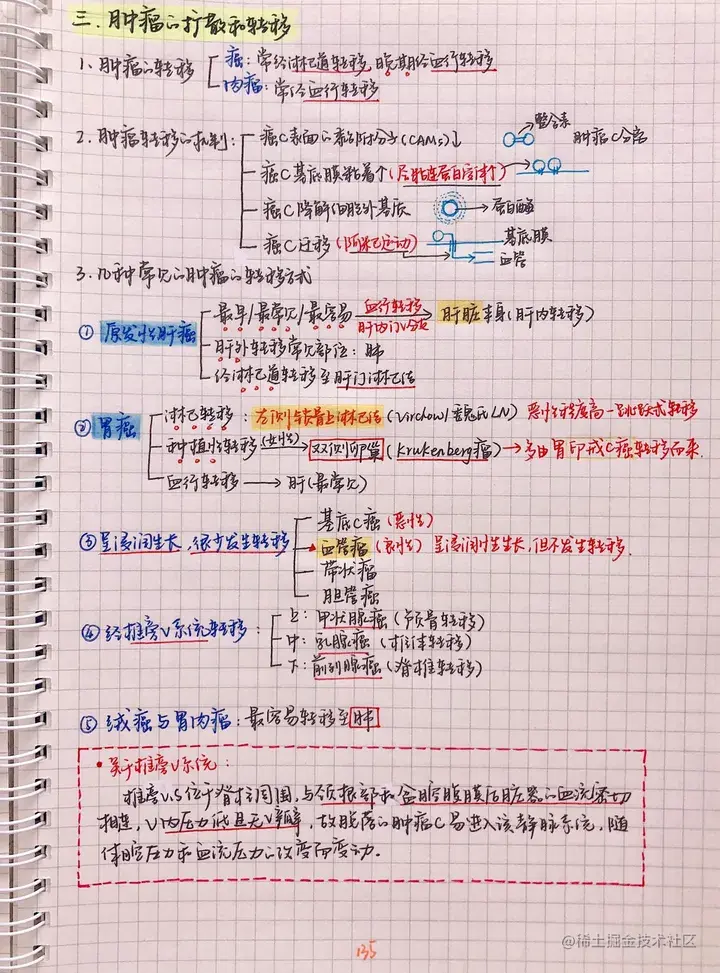 三．肿瘤的扩散和转移
1．肿瘤的转移 癌：常经淋巴道转移，晚期经血行转移
肉瘤：常经血行转移
2．肿瘤转移的机制： 癌C表面的黏附分子(CAMs)↓ 整合素 肿瘤C分离
癌C基底膜黏着个(层粘连蛋白) →
癌C降解细胞外基质 → 蛋白酶
癌C迁移(阿米巴运动) → 基底膜
血管
3．几种常见的肿瘤的转移方式
① 原发性肝癌 最早/最常见/最容易 血行转移 肝内门V分支 → 肝脏本身(肝内转移)
肝外转移常见部位：肺
经淋巴道转移至肝门淋巴结
② 胃癌 淋巴转移：左侧锁骨上淋巴结(Virchow/魏氏LN) 恶性程度高-跳跃式转移
种植性转移 (女性) → 双侧卵巢 (Krukenberg瘤) → 多由胃印戒C癌转移而来.
血行转移 → 肝(最常见)
③ 呈浸润生长，很少发生转移 基底C癌(恶性)
血管瘤(良性) 呈浸润性生长，但不发生转移.
带状瘤
胆管癌
④ 经椎旁V系统转移： 上：甲状腺癌(颅骨转移)
中：乳腺癌(椎体转移)
下：前列腺癌(脊椎转移)
⑤ 绒癌与骨肉瘤：最容易转移至肺
• 关于椎旁V系统：
椎旁V.S位于脊柱周围，与颈根部和盆腔腹膜后脏器的血流密切
相连，V内压力低且无V瓣，故脱落的肿瘤C易进入该静脉系统，随
体腔压力和血流压力的改变而变动.
135
@稀土掘金技术社区